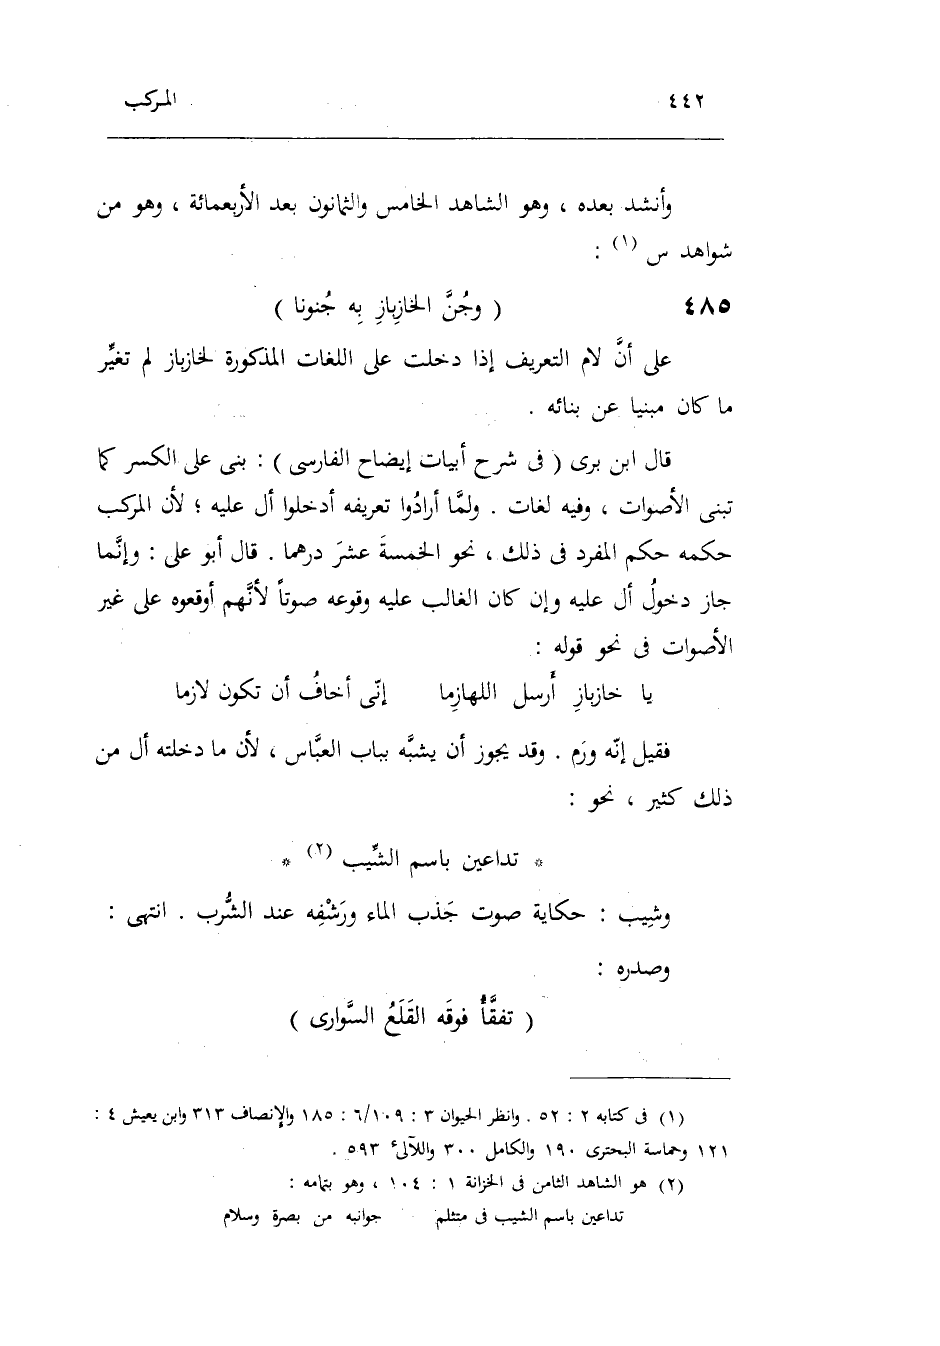 ٤٤٢ المركب
وأنشد بعده ، وهو الشاهد الخامس والثمانون بعد الأربعمائة ، وهو من
شواهد س (١) :
٤٨٥ ( وجُنَّ الخازِبازِ بِه جُنونا )
على أنَّ لام التعريف إذا دخلت على اللغات المذكورة لخازباز لم تغيِّر
ما كان مبنيا عن بنائه .
قال ابن برى ( فى شرح أبيات إيضاح الفارسى ) : بنى على الكسر كما
تبنى الأصوات ، وفيه لغات . ولمَّا أرادُوا تعريفه أدخلوا أل عليه ؛ لأن المركب
حكمه حكم المفرد فى ذلك ، نحو الخمسةَ عشرَ درهما . قال أبو على : وإنَّما
جاز دخولُ أل عليه وإن كان الغالب عليه وقوعه صوتاً لأنَّهم أوقعوه على غير
الأصوات فى نحو قوله :
يا خازبازِ أَرسل اللهازِما إنّى أخافُ أن تكون لازما
فقيل إنّه ورَم . وقد يجوز أن يشبَّه بباب العبَّاس ، لأن ما دخلته أل من
ذلك كثير ، نحو :
* تداعين باسم الشِّيب (٢) *
وشِيب : حكاية صوت جَذب الماء ورَشْفِه عند الشُّرب . انتهى :
وصدره :
( تفقَّأُ فوقَه القَلَعُ السَّوارى )
(١) فى كتابه ٢ : ٥٢ . وانظر الحيوان ٣ : ١٠٩/٦ : ١٨٥ والإنصاف ٣١٣ وابن يعيش ٤ :
١٢١ وحماسة البحترى ١٩٠ والكامل ٣٠٠ واللآلئ ٥٩٣ .
(٢) هو الشاهد الثامن فى الخزانة ١ : ١٠٤ ، وهو بتمامه :
تداعين باسم الشيب فى متثلم جوانبه من بصرة وسلام